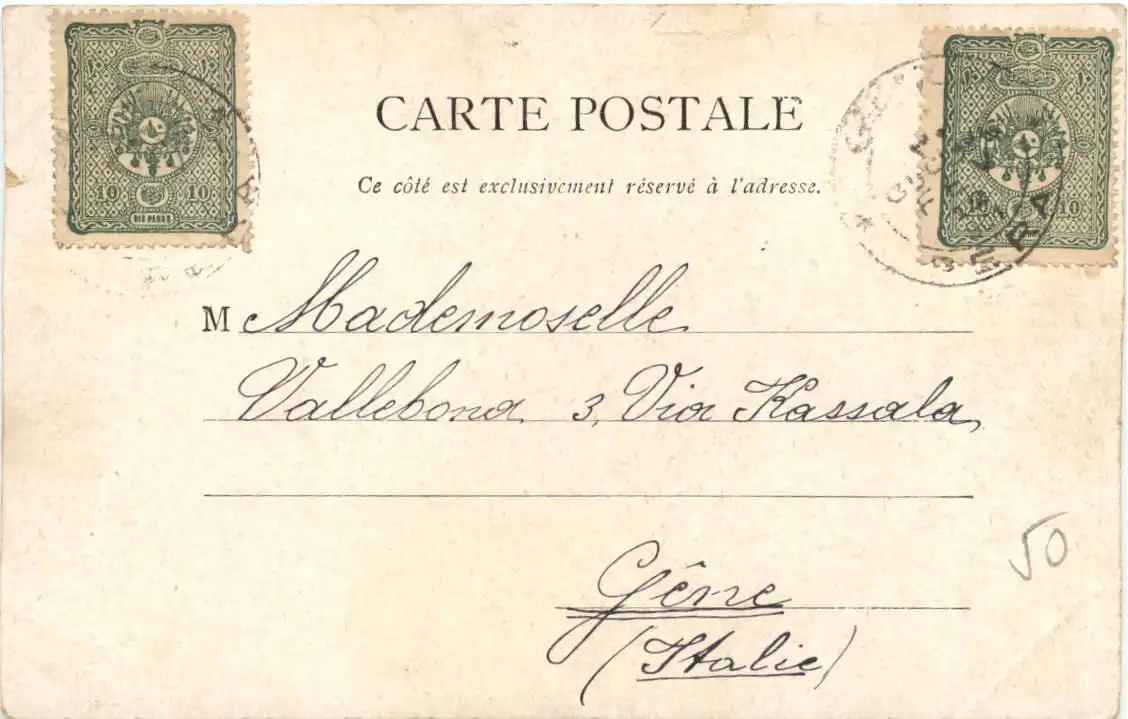 CARTE POSTALE
Ce côté est exclusivement réservé à l'adresse.
10 10
DIX PARAS
10 10
M Mademoselle
Vallebona 3, Via Kassala,
Gêne
(Italie)
50